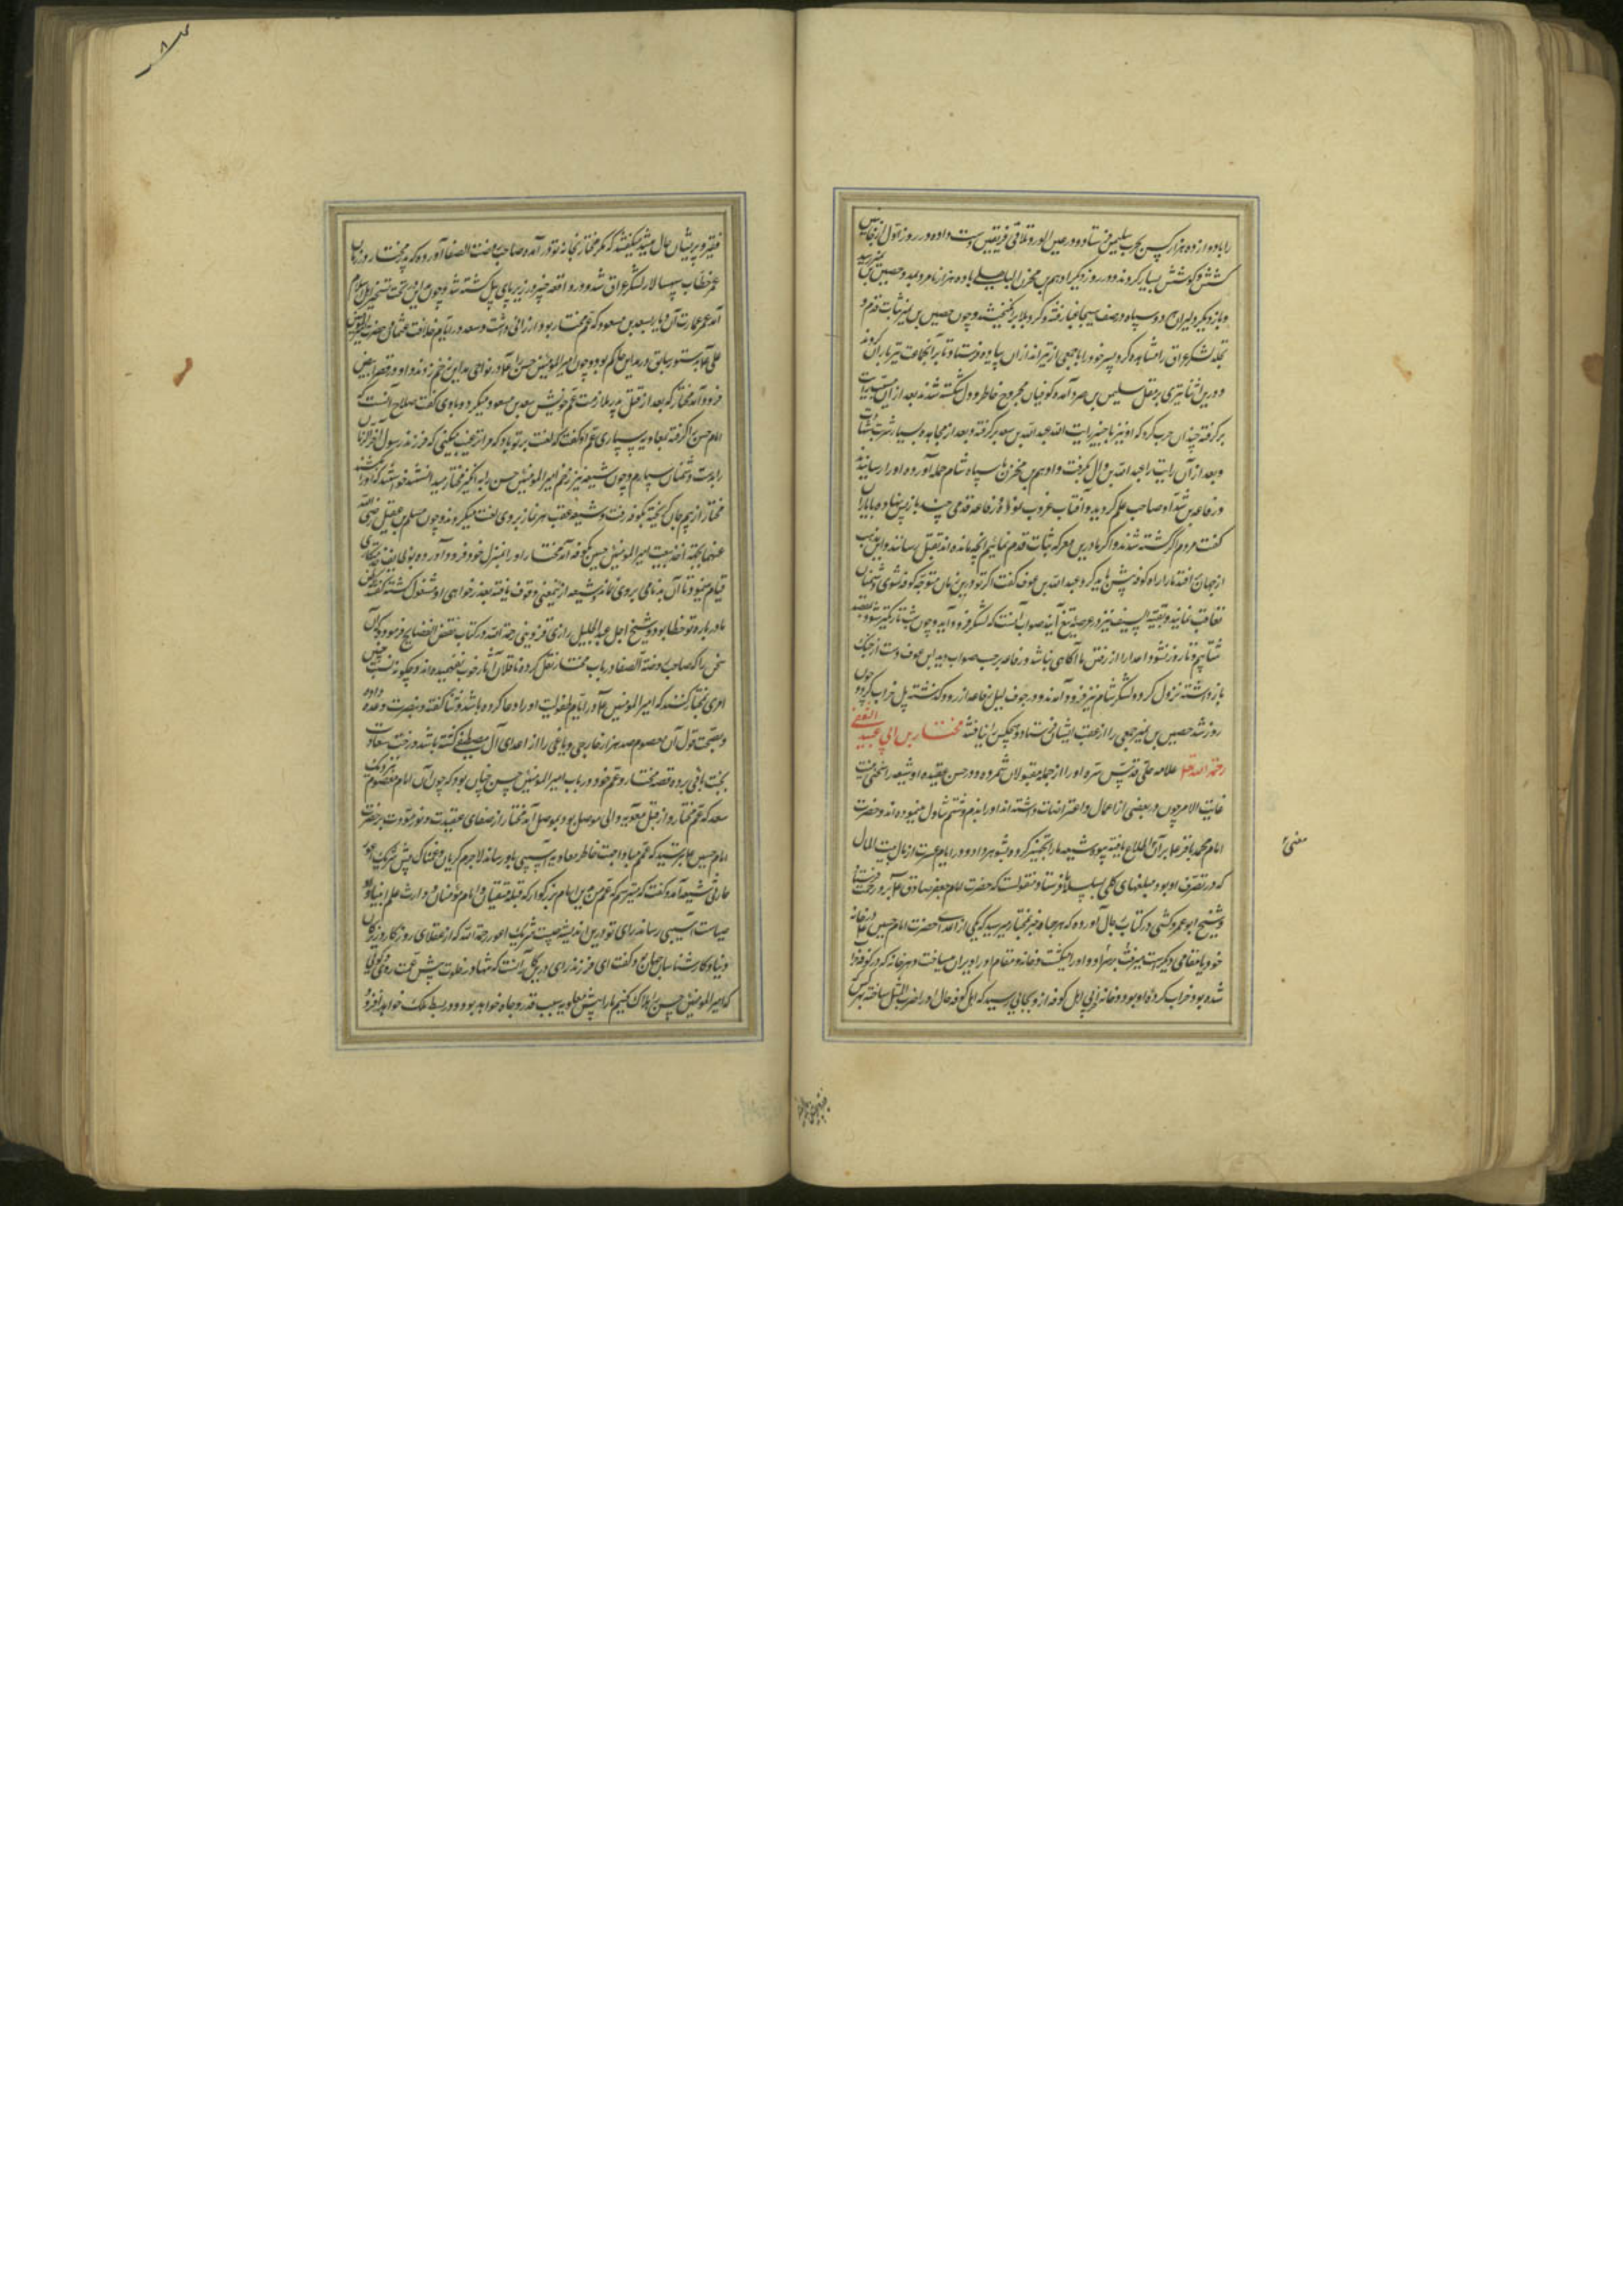 را با دوازده هزار کس بحرب سلیمن فرستاد و در عین الورد تلاقی فریقین دست داده در روز اول از جانبین
کشش و کوشش بسیار کردند و در روز دیگر ادهم بن محرز الباهلی با ده هزار نامرد بمدد حصین بن نمیر رسید
و باز دیگر دلیران دو سپاه و صف هیجا غبار فتنه و کرد بلا برانگیختند و چون حصین بن نمیر ثبات قدم و
لشکر عراق را مشاهده کرد پسر خود را با جمعی از تیراندازان پیاده فرستاد تا بر آنجماعت تیرباران کردند
و در این اثنا تیری بر مقتل سلیمن بن صرد آمده کوفیان مجروح خاطر و دل شکسته شدند بعد از آن مسیب رایت
بر کرفته چندان حرب کرد که او نیز رایت الله عبدالله بن سعد بر گرفته و بعد از مجاهده بسیار شربت شهادت
و بعد از آن رایت را عبدالله بن وال بگرفت و ادهم بن محرز با سپاه شام حمله آورده او را رسانیدند
و رفاعه بن شداد صاحب علم کردید و آفتاب غروب نموده رفاعه قدمی چند باز پس نهاده با یاران
گفت مردم اکثر کشته شدند و اکر ما درین معرکه ثبات قدم نمائیم آنچه مانده‌اند بقتل رسانند و این مذهب
از جهان افتد ما را راه کوفه پیش باید کرد عبدالله بن عوف گفت اکر تو درین زمان متوجه کوفه شوی دشمنان
تعاقب نمایند و بقیة السیف نیز در عرصه تیغ آیند صواب آنست که لشکر فرود آید و چون شب تاریکتر شود
شتابیم و تا روز نشود اعدا را از رفتن ما آکاهی نباشد رفاعه بر حسب صوابدید ابن عوف دست از جنک
باز داشته نزول کرد و لشکر شام نیز فرود آمدند و در جوف لیل رفاعه از رود گذشته پل خراب کرد و چون
روز شد حصین بن نمیر جمعی را از عقب ایشان فرستاد و هیچکس را نیافتند مختار بن ابی عبید الثقفی
رحمة الله تعالی علامه حلی قدس سره او را از جمله مقبولان شمرده و در حسن عقیده او شیعه را سخنی نیست
غایت الامر چون در بعضی از اعمال و اعتراضات داشته‌اند او را بذم و شتم تناول مینموده‌اند و حضرت
امام محمد باقر علیه بر آن اطلاع یافته بود شیعه ما را تجهیز کرده بشوهر داد و در ایام عسرت از مال بیت المال
که در تصرف او بود مبلغهای کلی ما فرستاد و منقولست که حضرت امام جعفر صادق علیه بر او رحمت فرستاد
و شیخ ابو عمرو کشی در کتاب رجال آورده که هر جا خبر بمختار میرسید که یکی از اعدای حضرت امام حسین علیه در خانه
خود یا مقامی دیگر هست میرفت بر سر او و او را میکشت و خانه و مقام او را ویران میساخت و هر خانه که در کوفه خراب
شده بود خراب کرده او بود و خانه و ابن اهل کوفه از و بجائی رسید که اهل کوفه حال او را ضرب المثل ساخته هر کس
معنی
فقیر و پریشان حال میشد میگفتند که مگر مختار بخانه تو در آمده صاحب روضة الصفا آورده که پدر مختار در زمان
عمر خطاب سپهسالار لشکر عراق شد و در واقعه جسر در زیر پای پیل کشته شد و چون تسخیر اهل اسلام
آمد عمر عمارت آن دیار بسعد بن مسعود که عم مختار بود ارزانی داشت و سعد در ایام خلافت عثمان و حضرت امیرالمؤمنین
علی علیه بدستور سابق در مداین حاکم بود و چون امیرالمؤمنین حسن را در نواحی مداین زخم زدند و او در قصر ابیض
فرود آمد مختار که بعد از قتل پدر ملازمت عم خویش سعد بن مسعود میکرد و با وی کفت صلاح آنست که
امام حسن را گرفته بمعاویه سپاری عم او گفت که لعنت بر تو باد که مرا ترغیب میکنی که فرزند رسول آخر الزمان
را بدست دشمنان سپارم و چون شیعه نیز زخم امیرالمؤمنین حسن را به انگیز مختار میدانستند خواستند که او را بکشند
مختار از بیم جان گریخته بکوفه رفت و شیعه عقب هر نماز بر وی لعنت میکردند و چون مسلم بن عقیل رضی الله
عنهما بجهة اخذ بیعت امیرالمؤمنین حسین بکوفه آمد مختار او را بمنزل خود فرود آورده
قیام مینمود تا آن بدنامی بر وی نماند و شیعه ازینمعنی وقوف یافته بعذر خواهی او مشغول گشته گفتند
ما در باره تو خطا بود و شیخ اجل عبدالجلیل رازی قزوینی رحمة الله در کتاب نقض الفضایح فرموده که آن
سخن را که صاحب روضة الصفا در باب مختار نقل کرده ناقلان آثار خوب نفهمیده‌اند و چگونه نسبت چنین
امری بمختار کنند که امیرالمؤمنین علیه در ایام طفولیت او را دعا کرده باشد و ثنا گفته و بنصرت وعده داده
و بصحت قول آن معصوم صد هزار خارجی و باغی را از اعدای آل مصطفی کشته باشد و رخت سعادت
بجنت باقی برده قصه مختار و عم خود در باب امیرالمؤمنین حسن چنان بود که چون آن امام معصوم نزدیک
سعد که عم مختار و از قبل معاویه والی موصل بود بموصل آمد مختار از صفای عقیدت و نور مودت بر حضرت
امام حسن علیه بترسید که عمم مبادا جهت خاطر معاویه آسیبی باو رساند لاجرم گریان و غمناک پیش شریک اعور
حارثی شیعه آمد و گفت که میترسم که عمم درین امام بزرگوار که قبله متقیان و امام مؤمنان و وارث علم انبیا
آسیبی رساند رای تو درین اندیشه چیست شریک اعور رحمة الله که از عقلای روزگار و زیرکان
دنیا و کار شناسان جهان بود گفت ای فرزند رای در این کار آنست که تنها در خلوت پیش عمت روی و گوئی
که امیرالمؤمنین حسن را هلاک کنیم ما را پیش معاویه بسبب قدر و جاه خواهد بود و در بسط ملک خواهد افزود